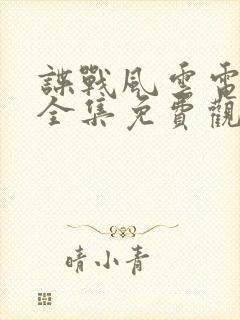 諜戰風雲電
全集免費觀
晴小青